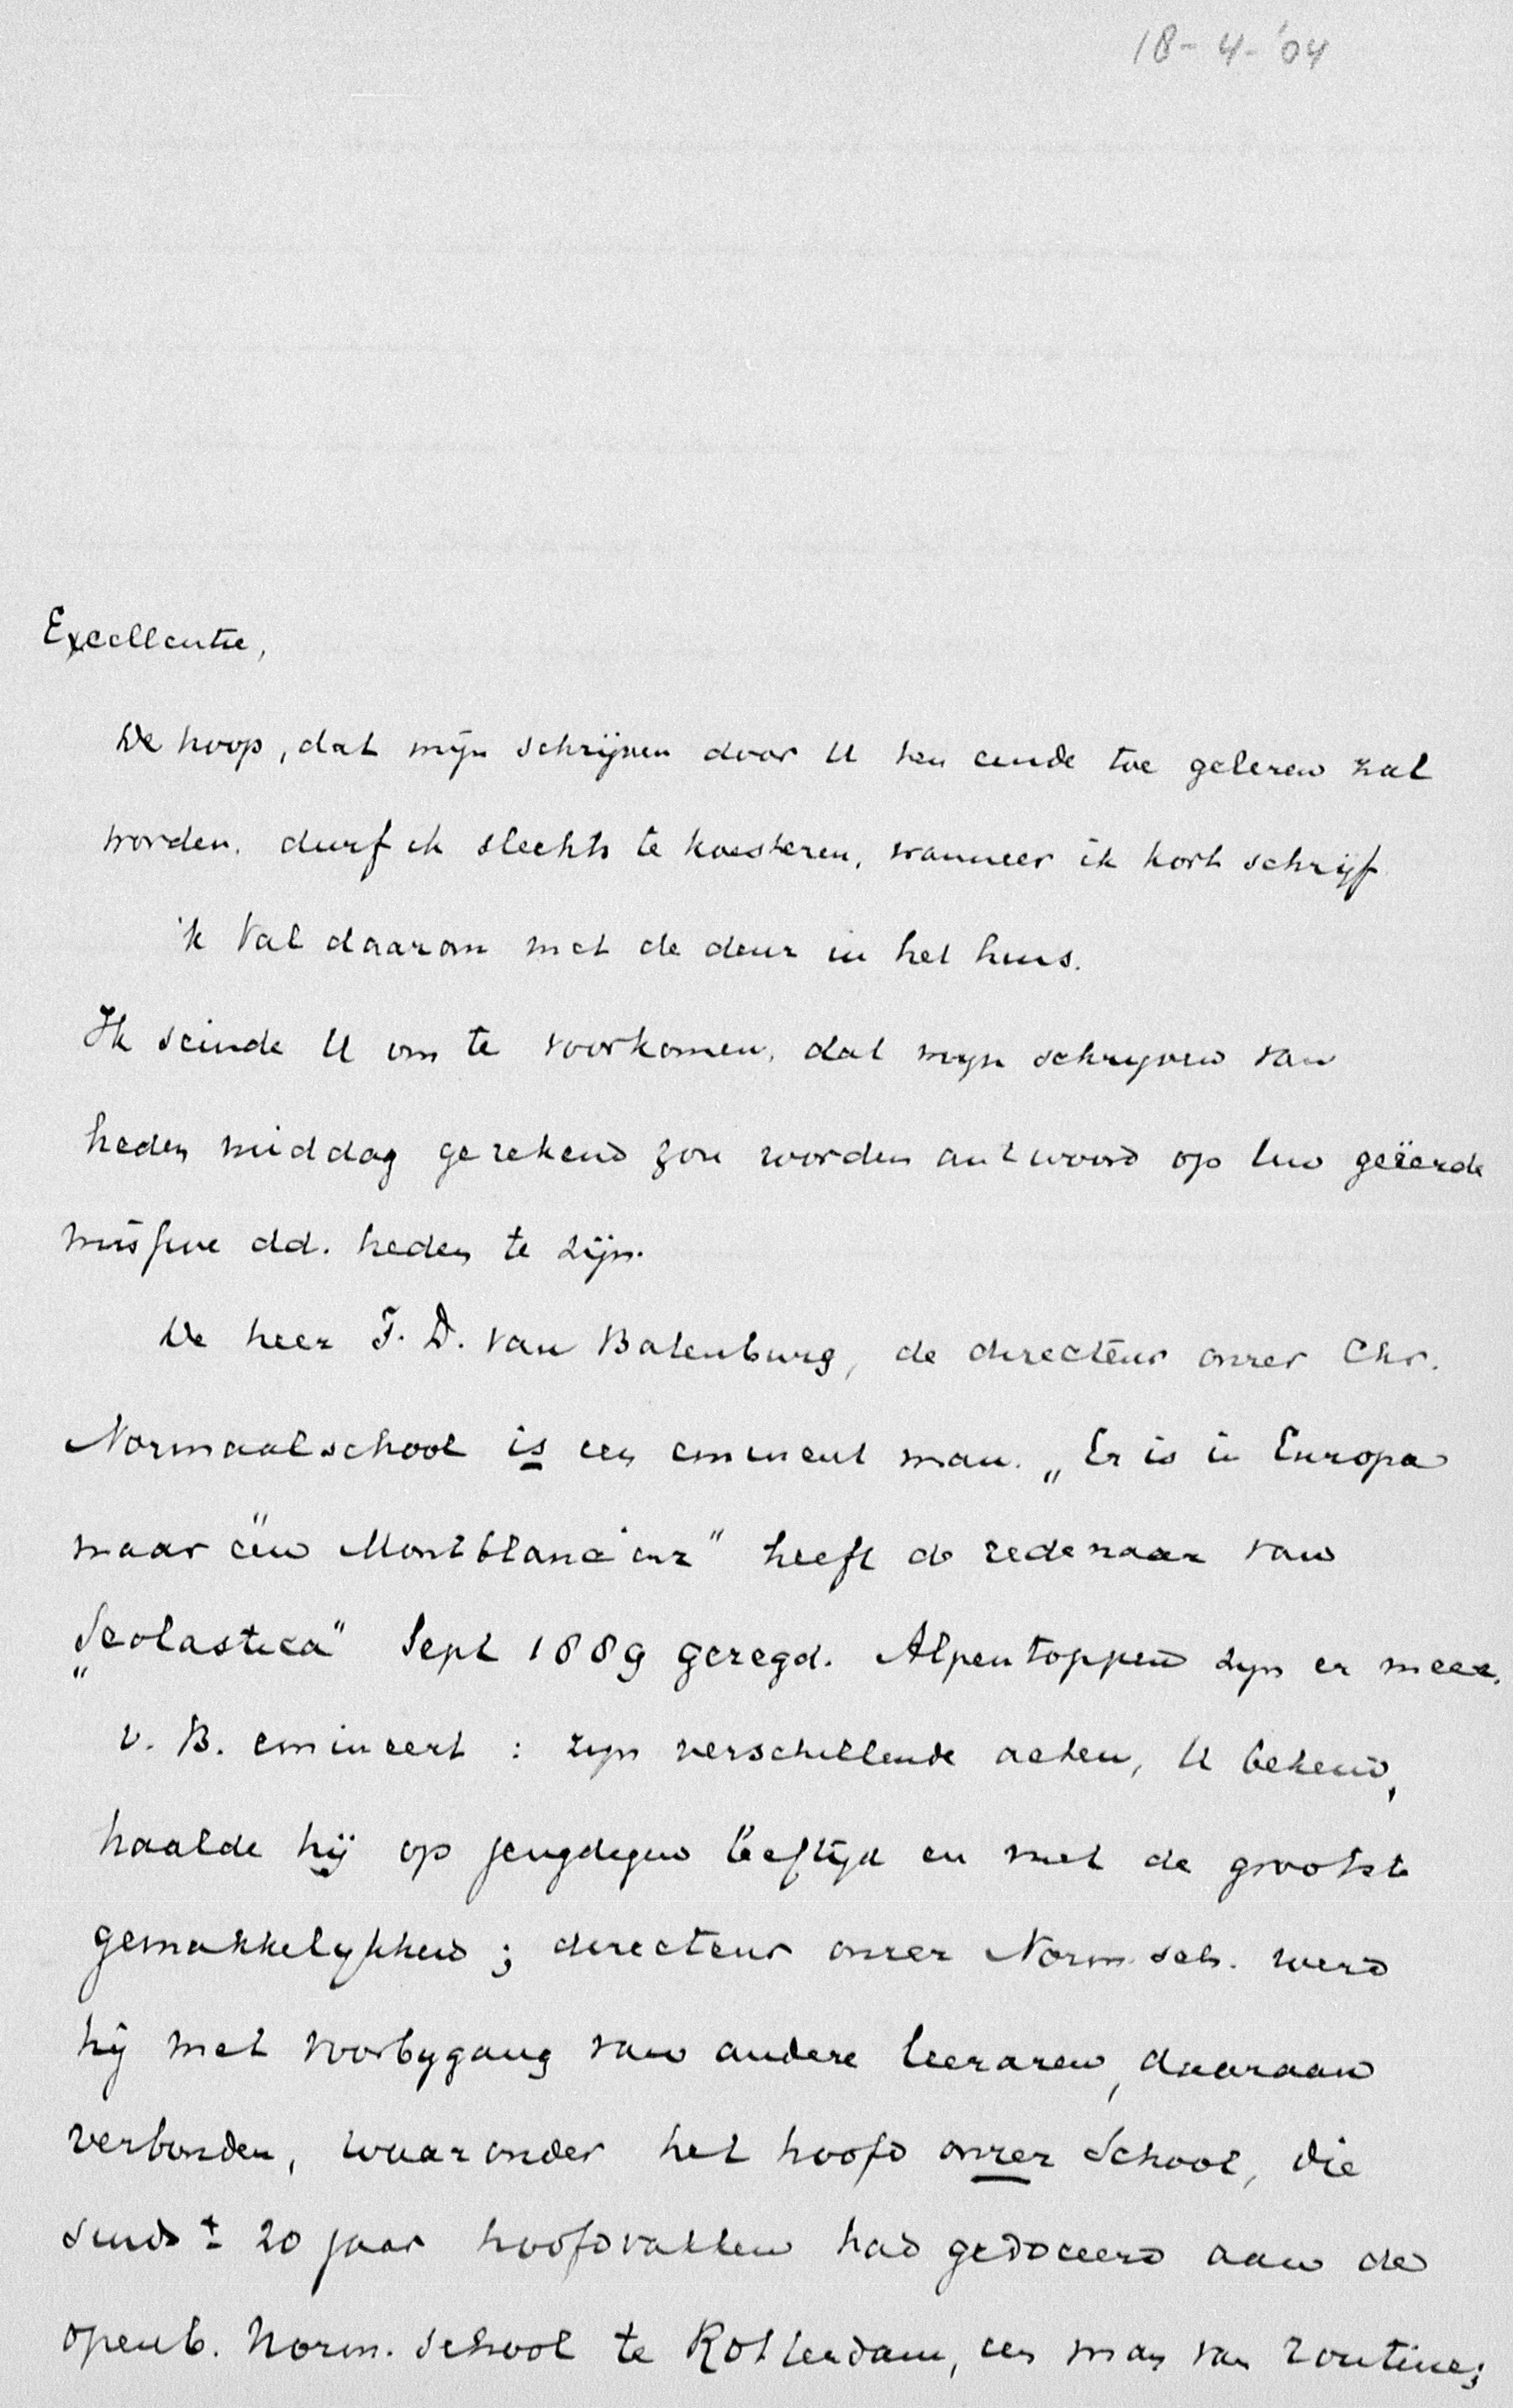 18-4-'04
Excellentie,
De hoop, dat mijn schrijven door U ten einde toe gelezen zal
worden, durf ik slechts te koesteren, wanneer ik kort schrijf.
'k Val daarom met de deur in het huis.
Ik seinde U om te voorkomen, dat mijn schrijven van
heden middag gerekend zou worden antwoord op Uw geëerde
missive dd. heden te zijn.
De heer J. D. van Batenburg, de directeur onzer Chr.
Normaalschool is een eminent man. „Er is in Europa
maar één Montblanc" heeft de redenaar van
„Scolastica" Sept 1889 gezegd. Alpentoppen zijn er meer.
v. B. emineert : zijn verschillende acten, U bekend,
haalde hij op jeugdigen leeftijd en met de grootste
gemakkelijkheid ; directeur onzer Norm. sch. werd
hij met voorbijgang van andere leeraren, daaraan
verbonden, waaronder het hoofd onzer School, die
sinds ± 20 jaar hoofdvakken had gedoceerd aan de
openb. Norm. School te Rotterdam, een man van routine;